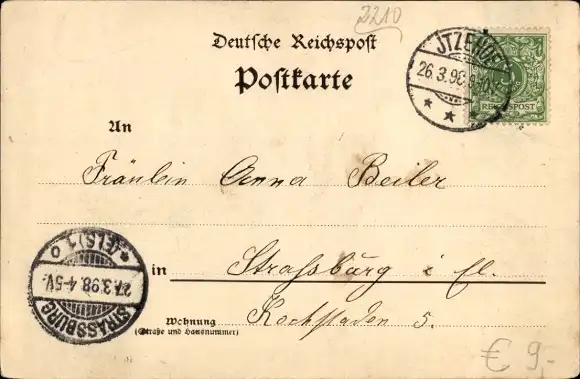 3210
Deutsche Reichspost
Postkarte
JTZEHOE
26.3.98
REICHSPOST
An
Fräulein Anna Beiler
in Strassburg i. El.
Wohnung
(Straße und Hausnummer)
5.
STRASSBURG
27.3.98.4-5V.
*(ELS)1 o
€ 9,-